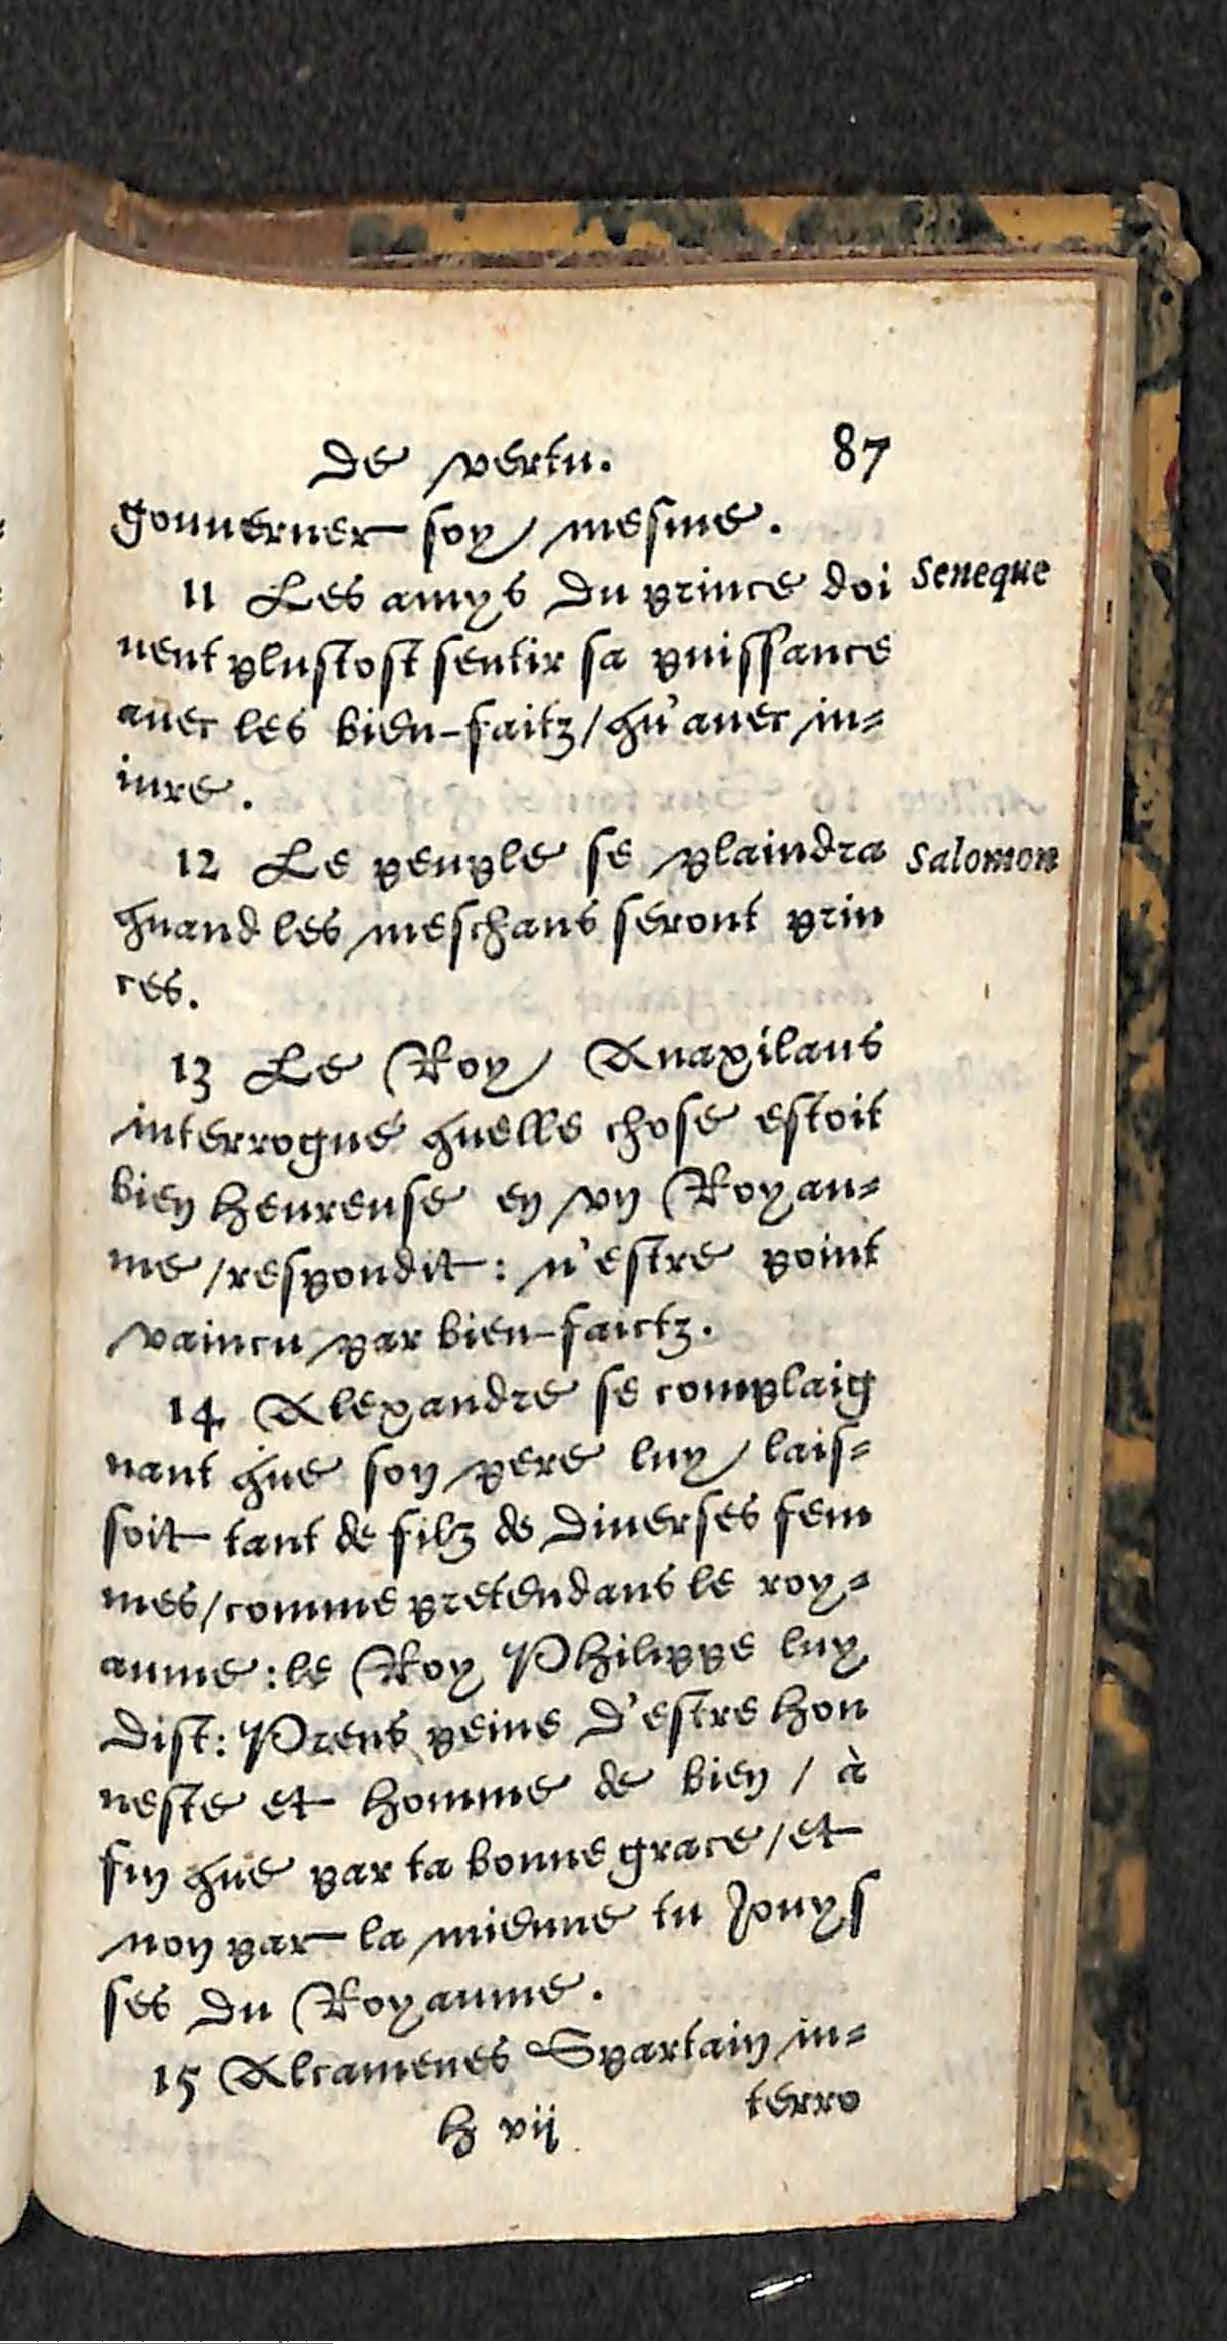 de vertu. 87
gouuerner soy mesme.
11 Les amys du prince doi
Seneque
uent plustost sentir sa puissance
auec les bien-faitz/qu'auec in-
iure.
12 Le peuple se plaindra
Salomon
quand les meschans seront prin
ces.
13 Le Roy Anaxilaus
interrogué quelle chose estoit
bien heureuse en vn Royau-
me/respondit: n'estre point
vaincu par bien-faictz.
14 Alexandre se complaig
nant que son pere luy lais-
soit tant de filz de diuerses fem
mes/comme pretendans le roy-
aume: le Roy Philippe luy
dist: Prens peine d'estre hon
neste et homme de bien/à
fin que par ta bonne grace/et
non par la mienne tu Jouys
ses du Royaume.
15 Alcamenes Spartain in-
terro
h vij